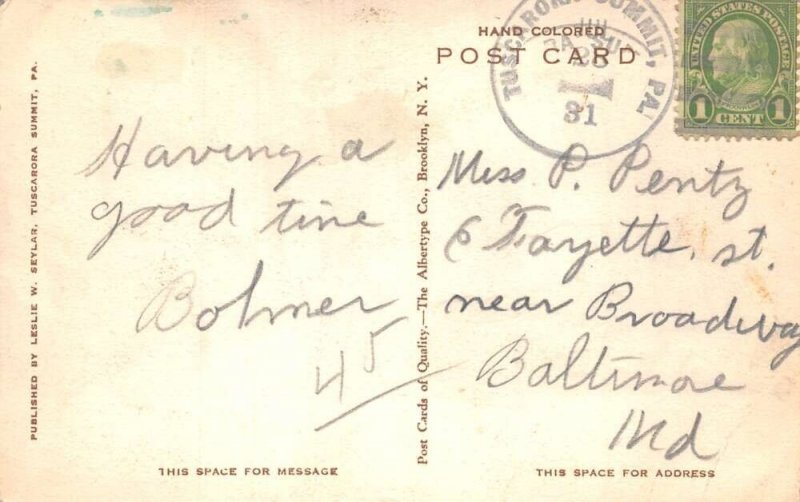 PUBLISHED BY LESLIE W. SEYLAR, TUSCARORA SUMMIT, PA.
Having a
good time
Bolmer
45
THIS SPACE FOR MESSAGE
Post Cards of Quality.—The Albertype Co., Brooklyn, N. Y.
HAND COLORED
POST CARD
TUSCARORA SUMMIT, PA.
31
UNITED STATES POSTAGE
1 CENT 1
Miss P. Pentz
E Fayette. st.
near Broadway
Baltimore
Md
THIS SPACE FOR ADDRESS